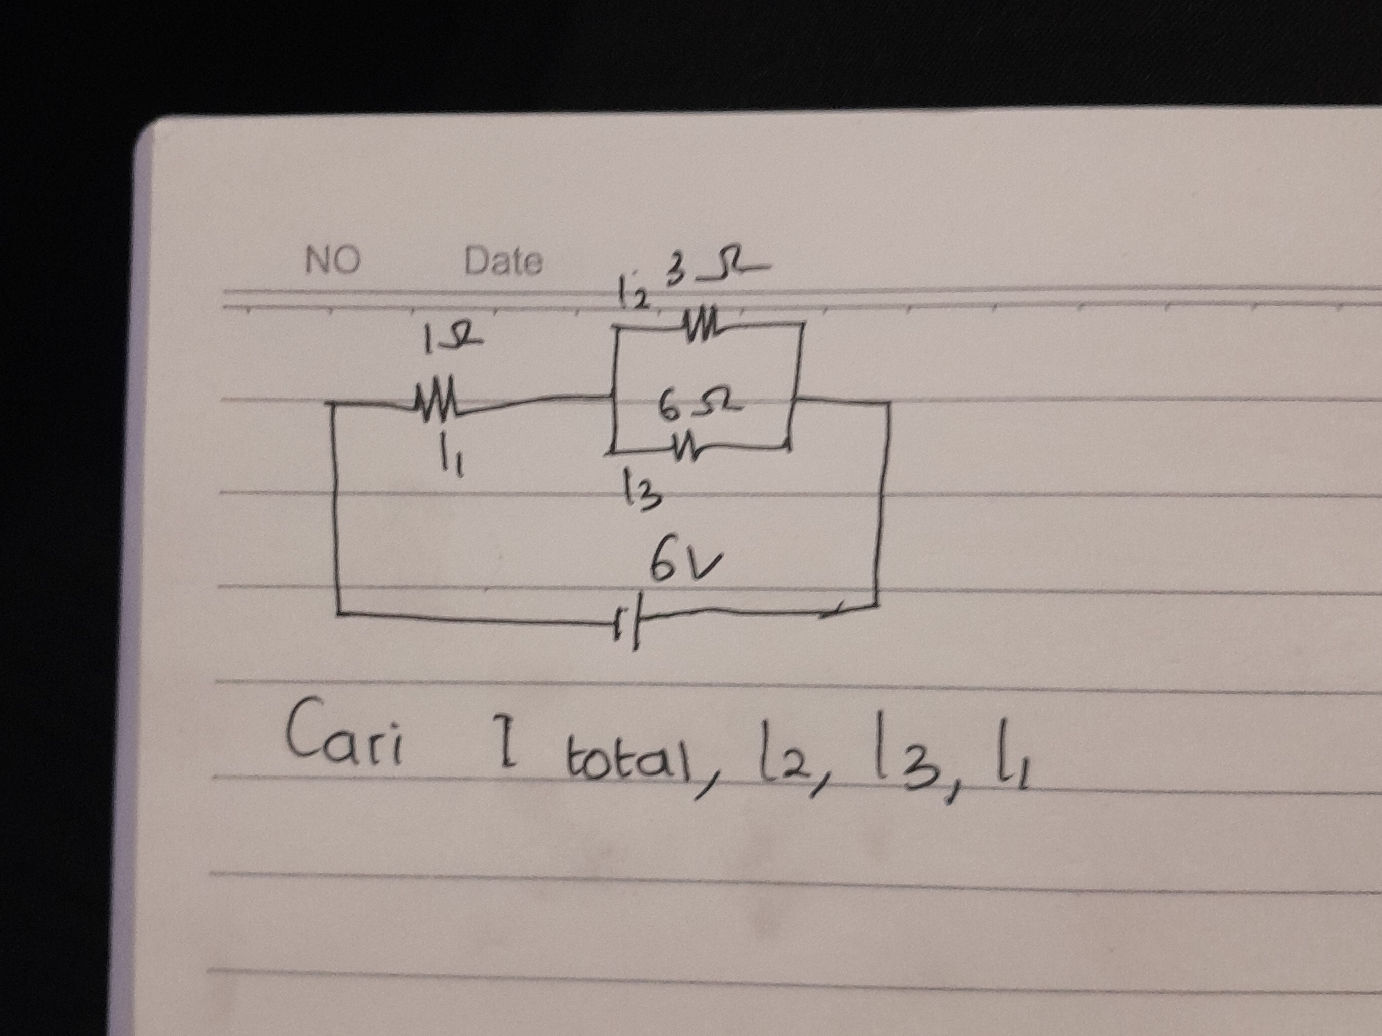 NO Date
I2 3 Ω
1Ω
6 Ω
I1
I3
6V
Cari I total, I2, I3, I1